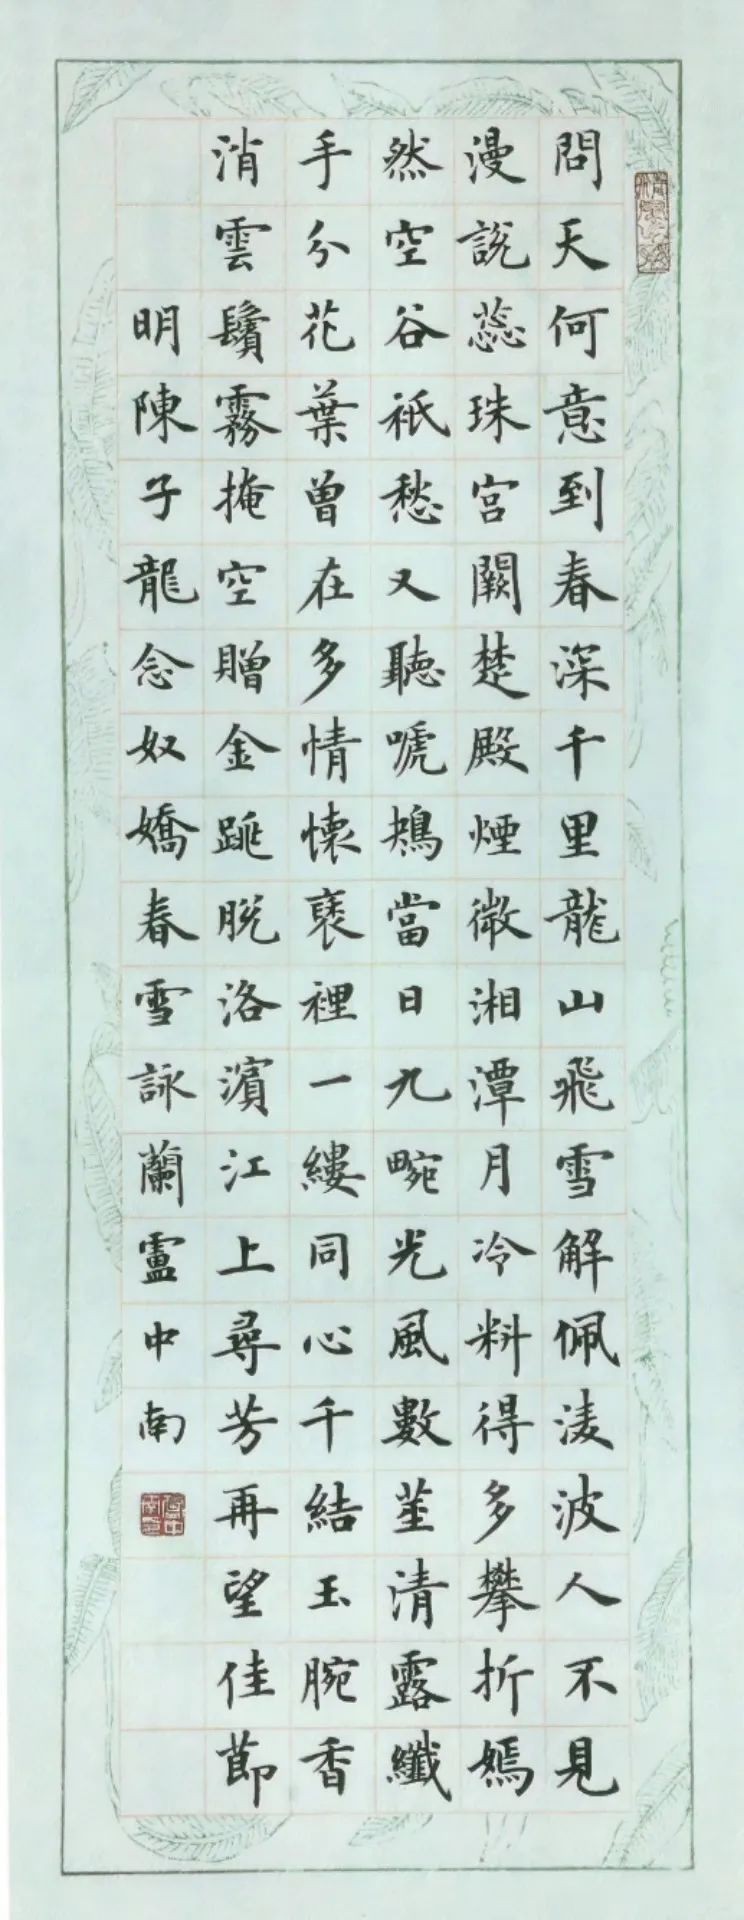 問天何意到春深千里龍山飛雪解佩淩波人不見
漫說蕊珠宮闕楚殿煙微湘潭月冷料得多攀折嫣
然空谷祇愁又聽嗁鴂當日九畹光風數莖清露纖
手分花葉曾在多情懷褎裡一縷同心千結玉腕香
消雲鬟霧掩空贈金跳脫洛濱江上尋芳再望佳節
明陳子龍念奴嬌春雪詠蘭盧中南